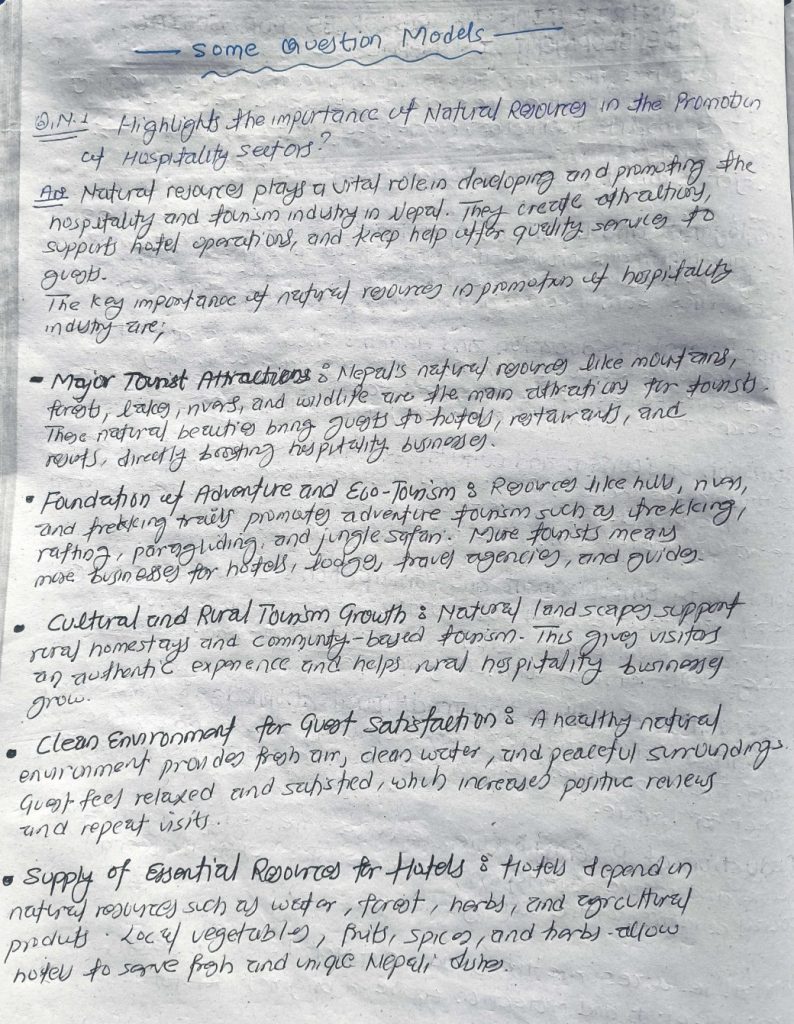 Some Question Models
Q.N.1 Highlights the importance of Natural Resources in the Promotion
of Hospitality Sectors?
Ans Natural resources plays a vital role in developing and promoting the
hospitality and tourism industry in Nepal. They create attractions,
supports hotel operations, and keep help offer quality services to
guests.
The key importance of natural resources in promotion of hospitality
industry are;
- Major Tourist Attractions : Nepal's natural resources like mountains,
forests, lakes, rivers, and wildlife are the main attractions for tourists.
These natural beauties bring guests to hotels, restaurants, and
resorts, directly boosting hospitality businesses.
• Foundation of Adventure and Eco-Tourism : Resources like hills, rivers,
and trekking trails promotes adventure tourism such as trekking,
rafting, paragliding, and jungle safari. More tourists means
more businesses for hotels, lodges, travel agencies, and guides.
• Cultural and Rural Tourism Growth : Natural landscapes support
rural homestays and community-based tourism. This gives visitors
an authentic experience and helps rural hospitality businesses
grow.
• Clean Environment for Guest Satisfaction : A healthy natural
environment provides fresh air, clean water, and peaceful surroundings.
Guest feel relaxed and satisfied, which increases positive reviews
and repeat visits.
• Supply of Essential Resources for Hotels : Hotels depend on
natural resources such as water, forest, herbs, and agricultural
products. Local vegetables, fruits, spices, and herbs allow
hotels to serve fresh and unique Nepali dishes.